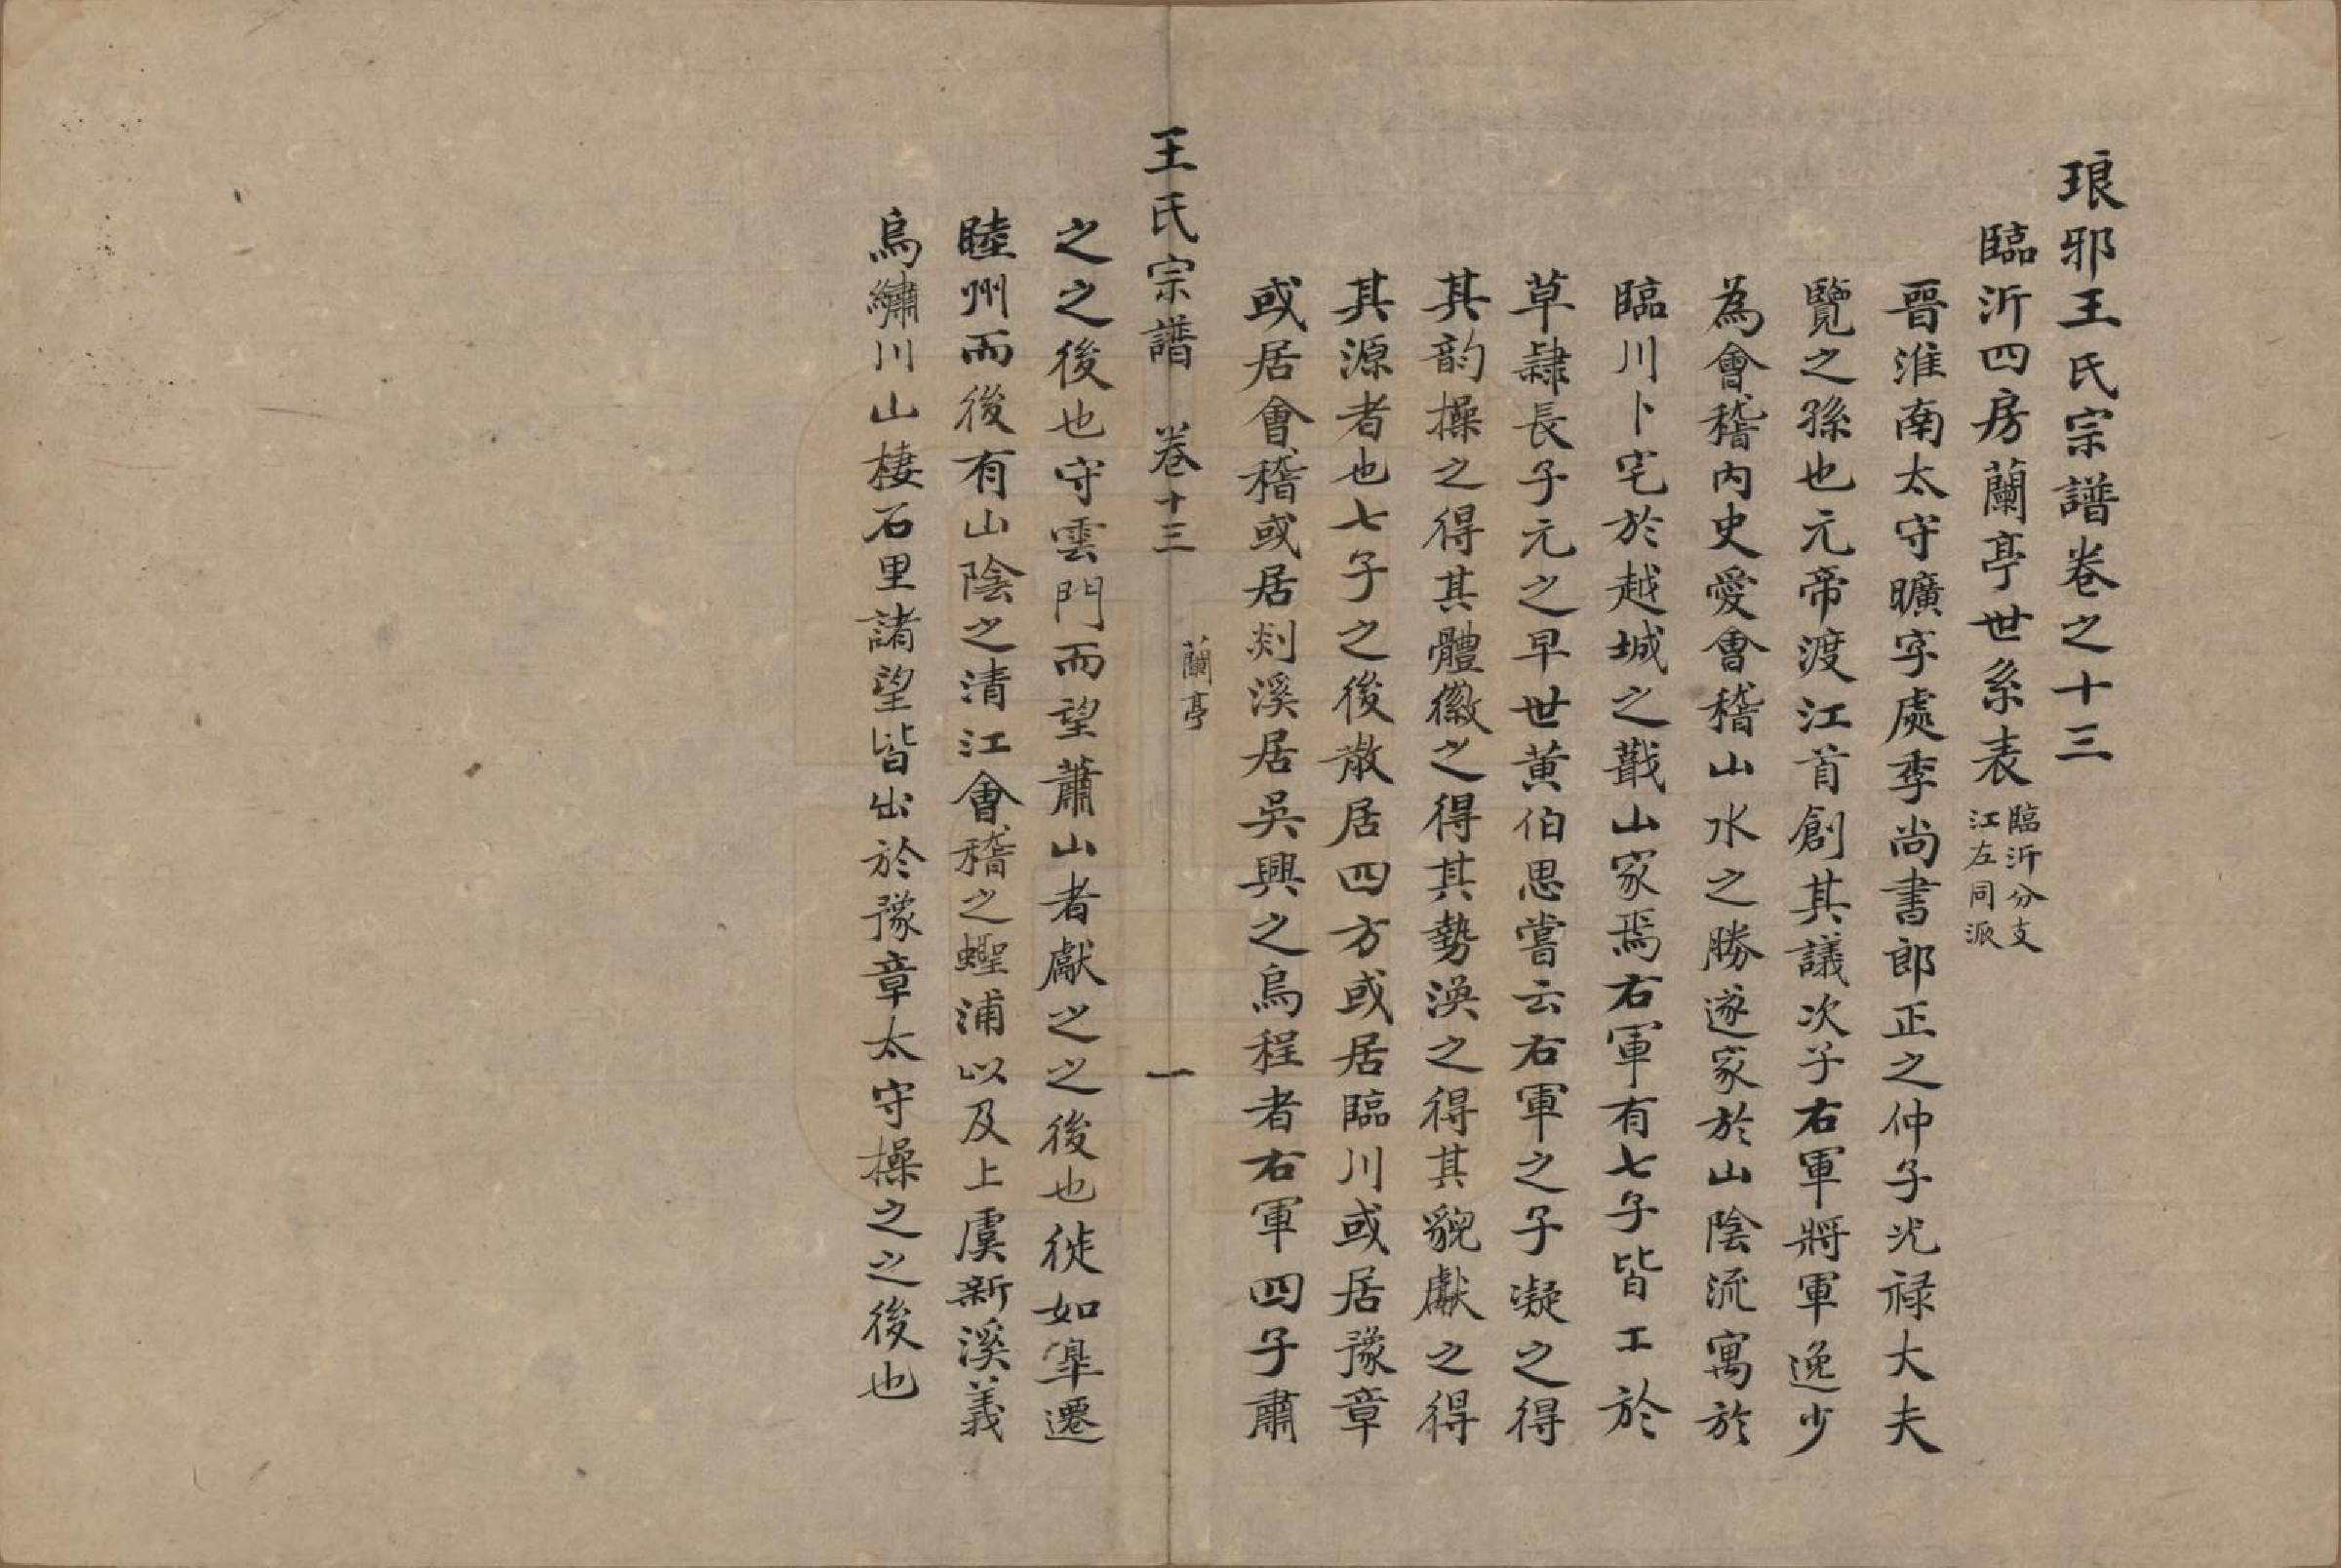 琅邪王氏宗譜卷之十三
臨沂四房蘭亭世系表
臨沂分支
江左同派
晉淮南太守曠字處季尚書郎正之仲子光禄大夫
覽之孫也元帝渡江首創其議次子右軍將軍逸少
為會稽內史愛會稽山水之勝遂家於山陰流寓於
臨川卜宅於越城之蕺山家焉右軍有七子皆工於
草隸長子元之早世黄伯思嘗云右軍之子凝之得
其韵操之得其體徽之得其勢渙之得其貌獻之得
其源者也七子之後散居四方或居臨川或居豫章
或居會稽或居剡溪居吳興之烏程者右軍四子肅
王氏宗譜 卷十三 蘭亭 一
之之後也守雲門而望蕭山者獻之之後也徙如皐遷
睦州而後有山陰之清江會稽之蟶浦以及上虞新溪義
烏繡川山棲石里諸望皆出於豫章太守操之之後也